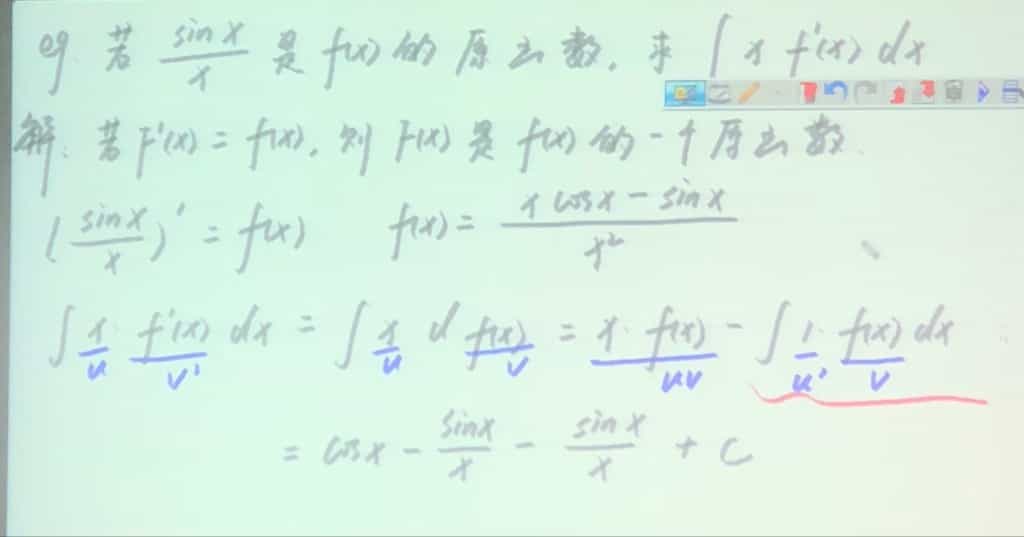 eg. 若 \frac{sin x}{x} 是 f(x) 的 原函数, 求 ∫ x f'(x) dx
解: 若 F'(x) = f(x), 则 F(x) 是 f(x) 的一个原函数.
(\frac{sin x}{x})' = f(x) f(x) = \frac{x cos x - sin x}{x²}
∫ x · f'(x) dx = ∫ x d f(x) = x · f(x) - ∫ 1 · f(x) dx
u v' u v uv u' v
= cos x - \frac{sin x}{x} - \frac{sin x}{x} + C